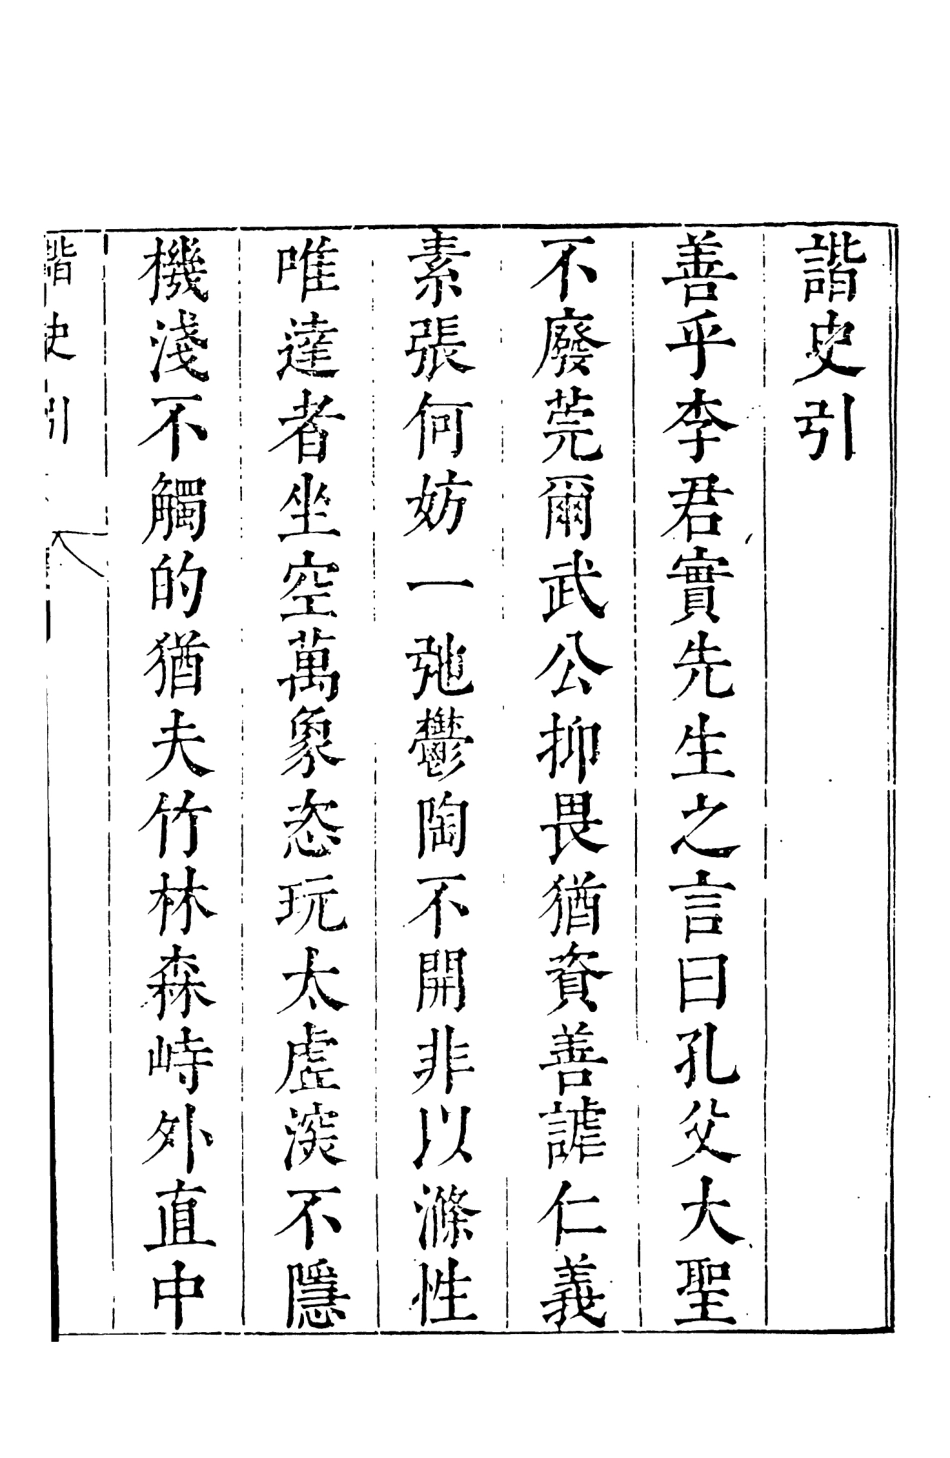 諧史引
善乎李君實先生之言曰孔父大聖
不廢莞爾武公抑畏猶資善謔仁義
素張何妨一弛鬱陶不開非以滌性
唯達者坐空萬象恣玩太虛深不隱
機淺不觸的猶夫竹林森峙外直中
諧史引